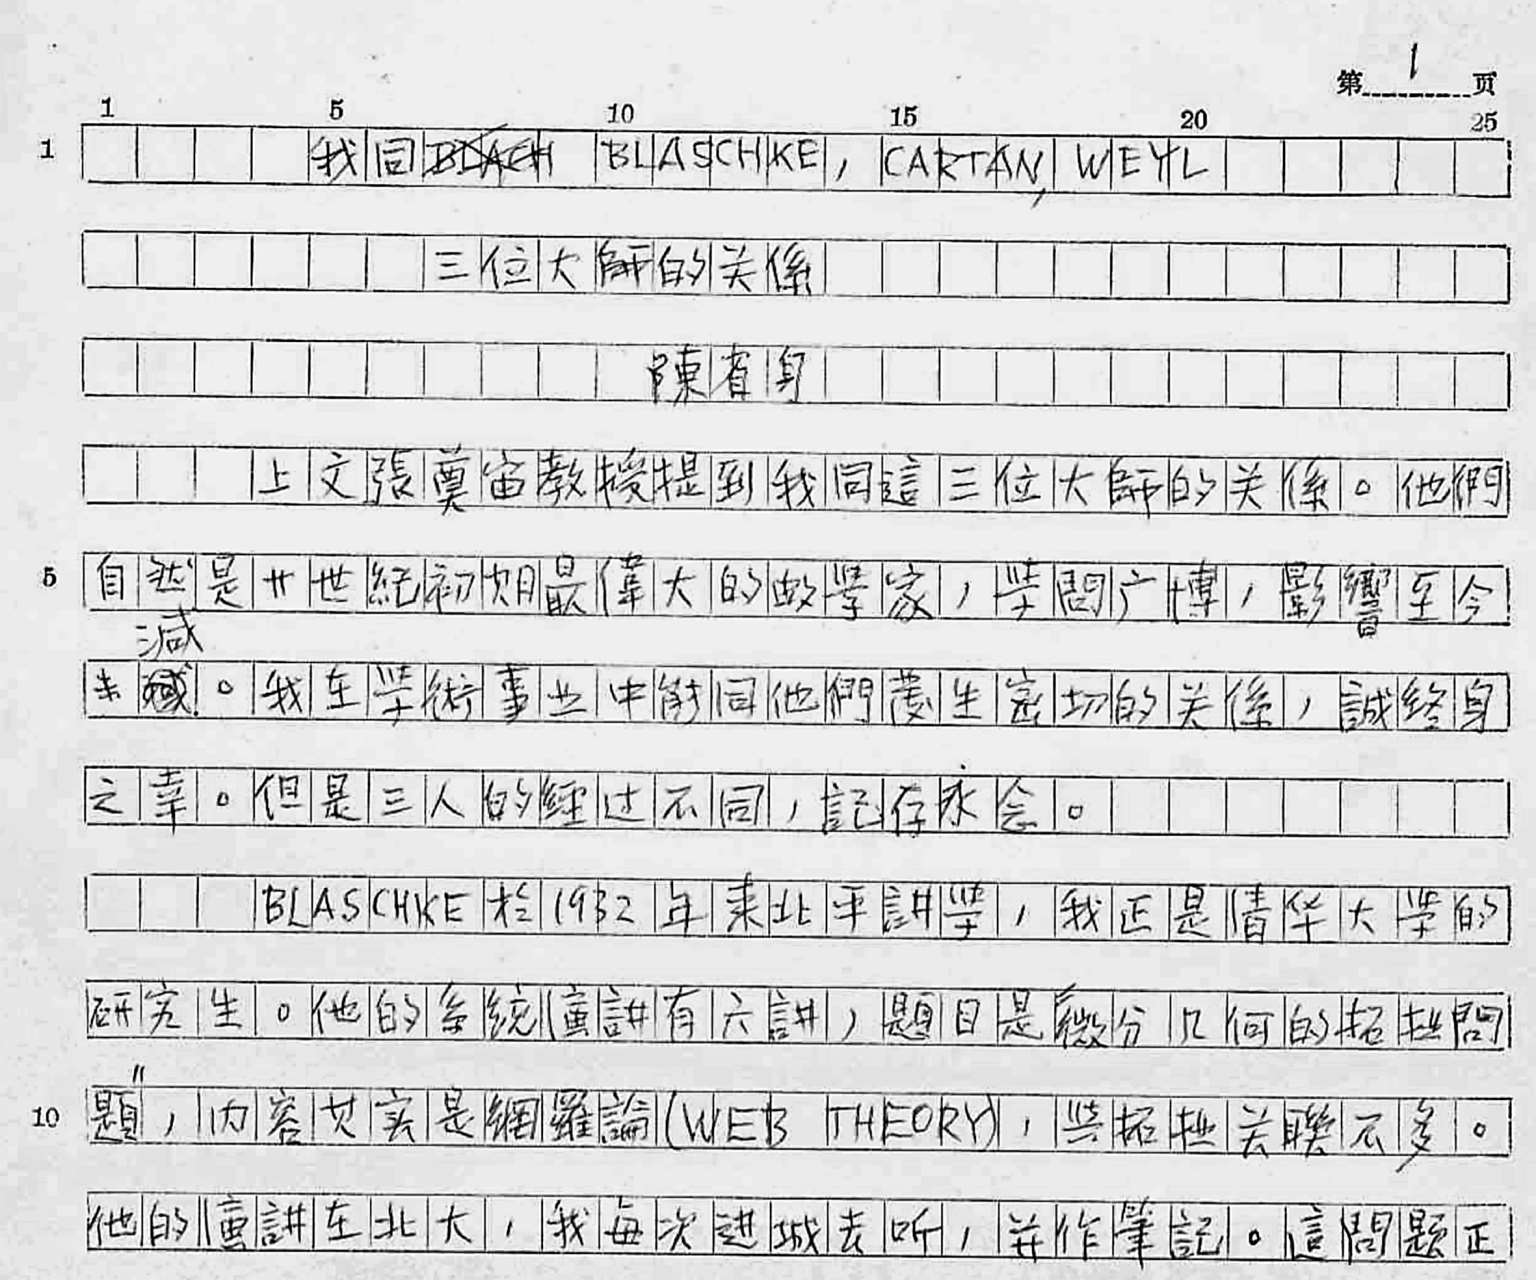 第 1 页
1 5 10 15 20 25
1 我同 BLASCHKE, CARTAN, WEYL
三位大師的关係
陳省身
上文張奠宙教授提到我同這三位大師的关係。他們
5 自然是廿世紀初期最偉大的数學家,学問广博,影響至今
未減。我在学術事业中能同他們发生密切的关係,誠終身
之幸。但是三人的經过不同,記存永念。
BLASCHKE 於1932年来北平講学,我正是清华大学的
研究生。他的系統演講有六講,題目是"微分几何的拓扑問
10 題",内容其实是網羅論(WEB THEORY),与拓扑关聯不多。
他的演講在北大,我每次进城去听,并作筆記。這問題正